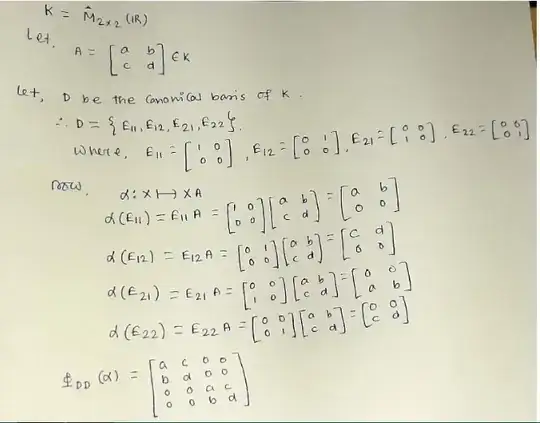 K = M̂2×2 (IR)
Let,
A = [a b; c d] ∈ K
Let, D be the canonical basis of K.
∴ D = {E11, E12, E21, E22}.
Where, E11 = [1 0; 0 0], E12 = [0 1; 0 0], E21 = [0 0; 1 0], E22 = [0 0; 0 1]
Now, α : X ↦ XA
α(E11) = E11 A = [1 0; 0 0] [a b; c d] = [a b; 0 0]
α(E12) = E12 A = [0 1; 0 0] [a b; c d] = [c d; 0 0]
α(E21) = E21 A = [0 0; 1 0] [a b; c d] = [0 0; a b]
α(E22) = E22 A = [0 0; 0 1] [a b; c d] = [0 0; c d]
ΦDD (α) = [a c 0 0; b d 0 0; 0 0 a c; 0 0 b d]